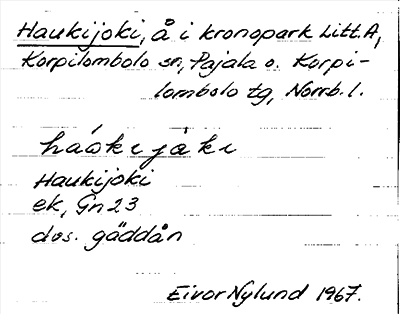 Haukijoki, å i kronopark Litt. A,
Korpilombolo sn, Pajala o. Korpi-
lombolo tg, Norrb. l.
háu̯kijåki
Haukijoki
ek, Gn 23
dvs. gäddån
Eivor Nylund 1967.